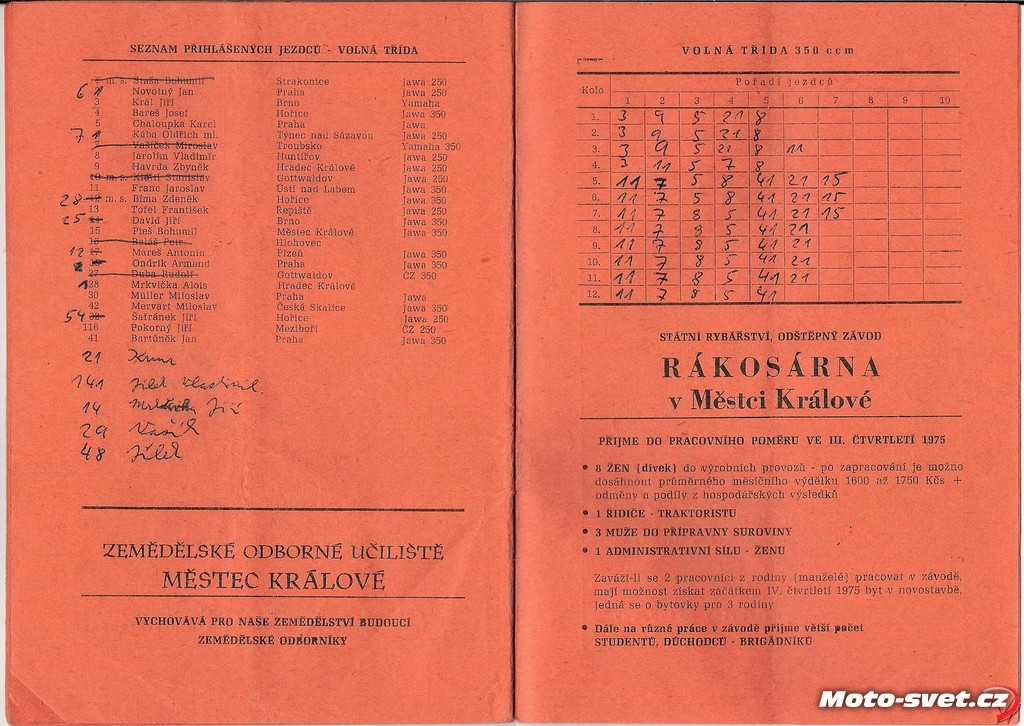 SEZNAM PŘIHLÁŠENÝCH JEZDCŮ - VOLNÁ TŘÍDA
1 m. s. Staša Bohumil Strakonice Jawa 250
6 Novotný Jan Praha Jawa 250
3 Král Jiří Brno Yamaha
4 Bareš Josef Hořice Jawa 350
5 Chaloupka Karel Praha Jawa
7 Kába Oldřich ml. Týnec nad Sázavou Jawa 250
Vašíček Miroslav Troubsko Yamaha 350
8 Jarolím Vladimír Huntířov Jawa 250
9 Havrda Zbyněk Hradec Králové Jawa 250
10 m. s. Klátil Stanislav Gottwaldov Jawa 250
11 Franc Jaroslav Ústí nad Labem Jawa 350
28 m. s. Bíma Zdeněk Hořice Jawa 350
13 Töfel František Řepiště Jawa 250
25 David Jiří Brno Jawa 350
15 Pleš Bohumil Městec Králové Jawa 350
16 Baláš Petr Hlohovec
12 17 Mareš Antonín Plzeň Jawa 350
Ondrík Armand Praha Jawa 350
27 Duba Rudolf Gottwaldov ČZ 350
128 Mrkvička Alois Hradec Králové
30 Müller Miloslav Praha Jawa
42 Mervart Miloslav Česká Skalice Jawa 350
54 Šafránek Jiří Hořice Jawa 250
116 Pokorný Jiří Meziboří ČZ 250
41 Bartůněk Jan Praha Jawa 350
21
141 Jílek Vlastimil
14 Jiří
29 Vašík
48 Jílek
ZEMĚDĚLSKÉ ODBORNÉ UČILIŠTĚ
MĚSTEC KRÁLOVÉ
VYCHOVÁVÁ PRO NAŠE ZEMĚDĚLSTVÍ BUDOUCÍ
ZEMĚDĚLSKÉ ODBORNÍKY
VOLNÁ TŘÍDA 350 ccm
Kolo Pořadí jezdců
1 2 3 4 5 6 7 8 9 10
1. 3 9 5 21 8
2. 3 9 5 21 8
3. 3 9 5 21 8 11
4. 3 11 5 7 8
5. 11 7 5 8 41 21 15
6. 11 7 5 8 41 21 15
7. 11 7 8 5 41 21 15
8. 11 7 8 5 41 21
9. 11 7 8 5 41 21
10. 11 7 8 5 41 21
11. 11 7 8 5 41 21
12. 11 7 8 5 41
STÁTNÍ RYBÁŘSTVÍ, ODŠTĚPNÝ ZÁVOD
RÁKOSÁRNA
v Městci Králové
PŘIJME DO PRACOVNÍHO POMĚRU VE III. ČTVRTLETÍ 1975
• 8 ŽEN (dívek) do výrobních provozů - po zapracování je možno
dosáhnout průměrného měsíčního výdělku 1600 až 1750 Kčs +
odměny a podíly z hospodářských výsledků
• 1 ŘIDIČE - TRAKTORISTU
• 3 MUŽE DO PŘÍPRAVNY SUROVINY
• 1 ADMINISTRATIVNÍ SÍLU - ŽENU
Zaváží-li se 2 pracovníci z rodiny (manželé) pracovat v závodě,
mají možnost získat začátkem IV. čtvrtletí 1975 byt v novostavbě,
jedná se o bytovky pro 3 rodiny
• Dále na různé práce v závodě přijme větší počet
STUDENTŮ, DŮCHODCŮ - BRIGÁDNÍKŮ
Moto-svet.cz